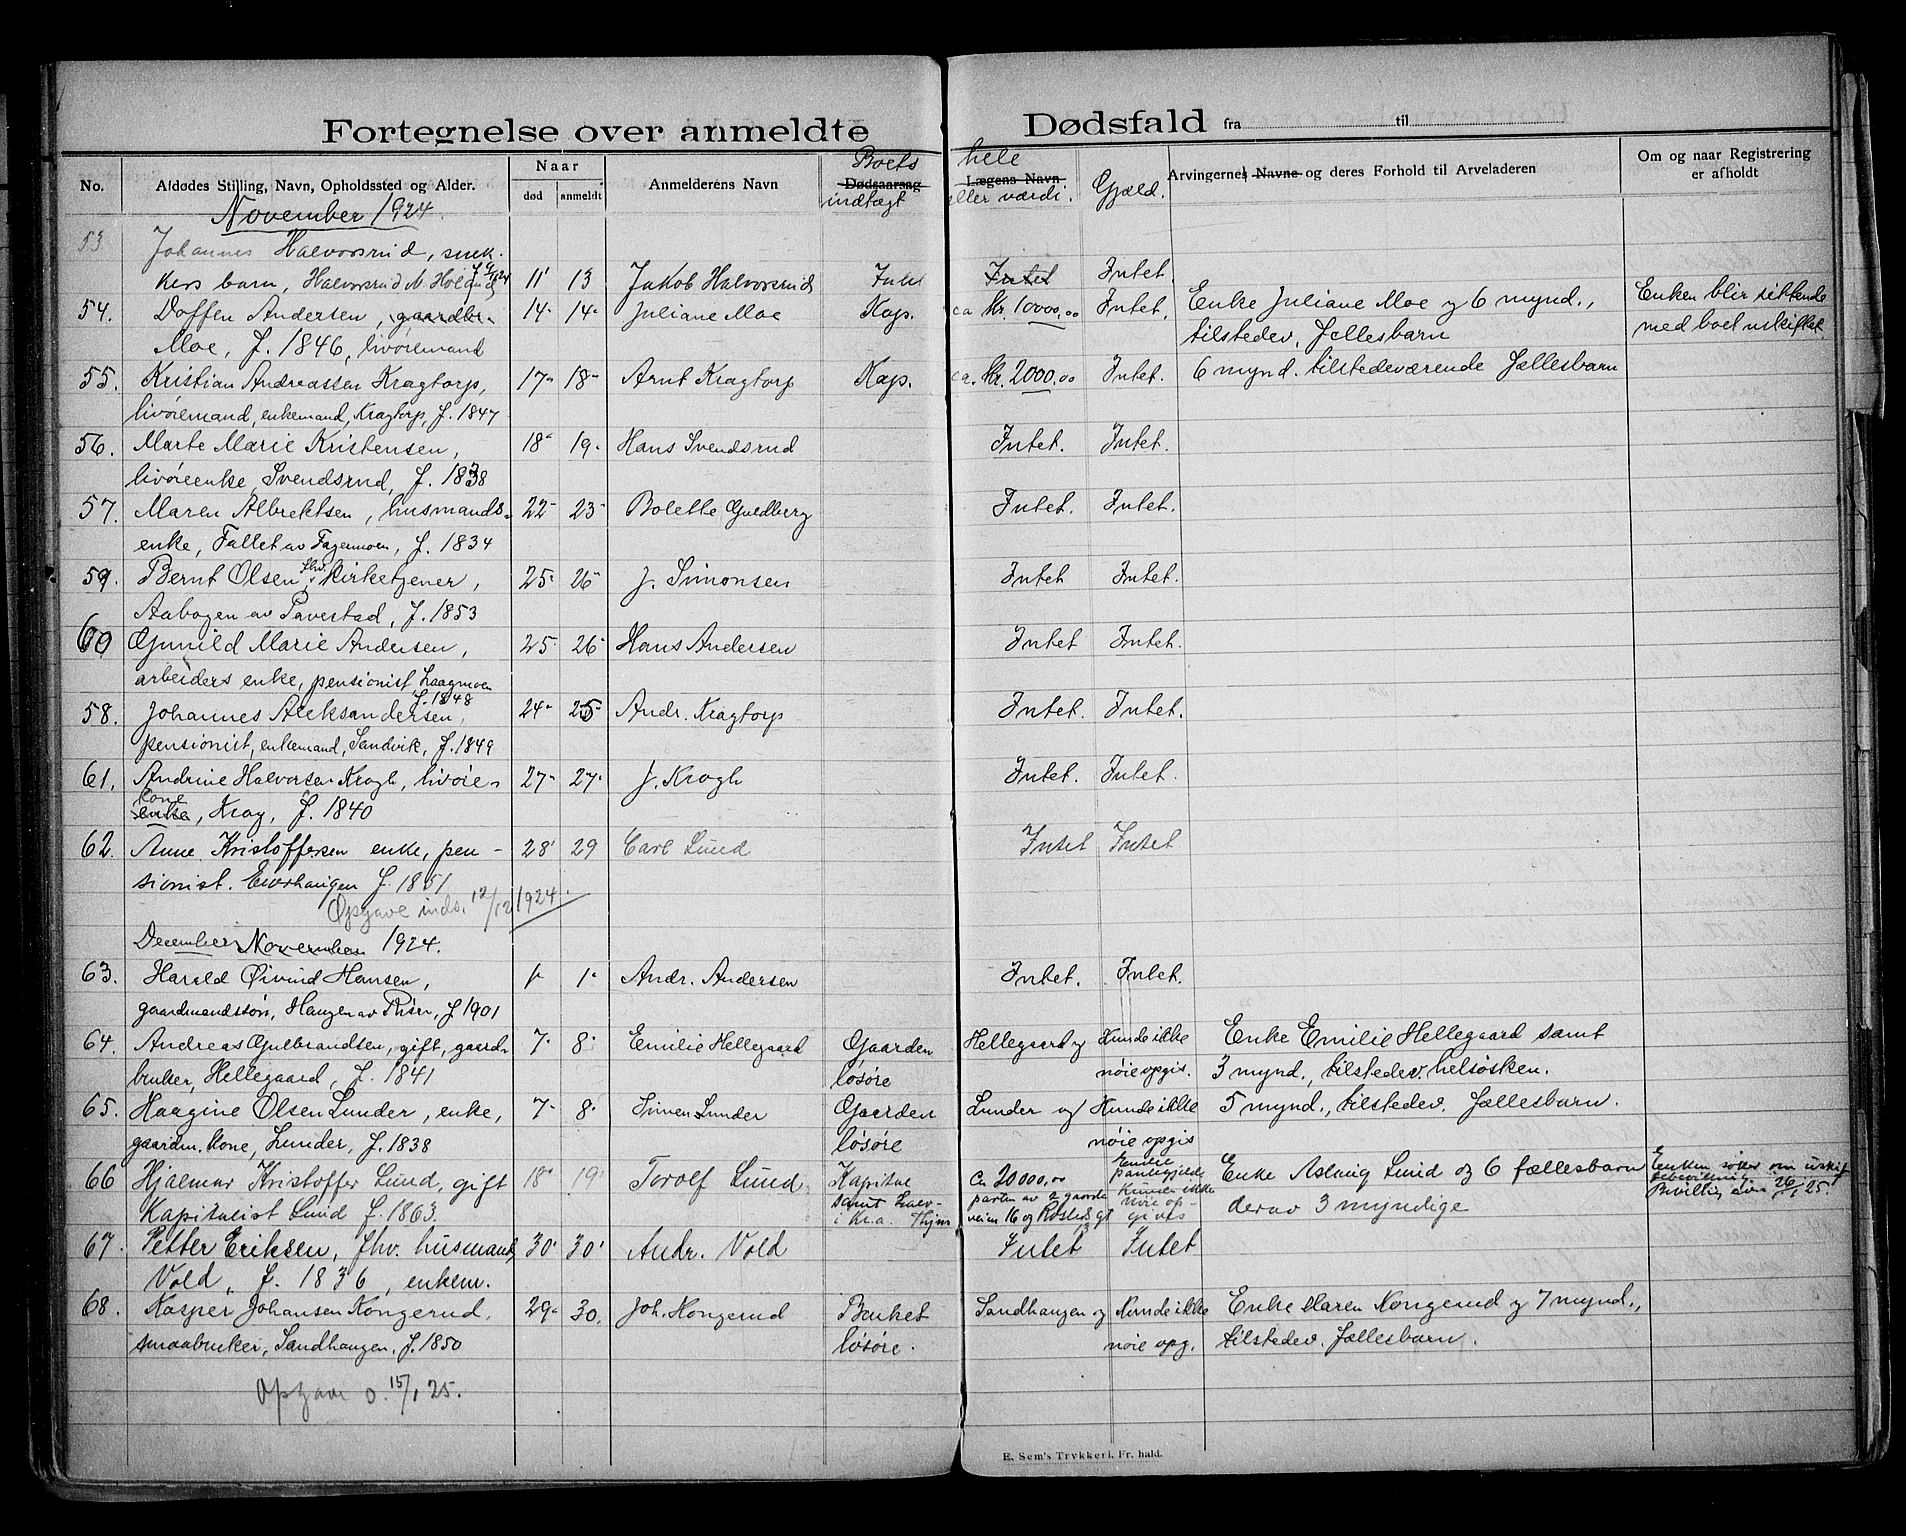 Fortegnelse over anmeldte Dødsfald fra til
No. Afdødes Stilling, Navn, Opholdssted og Alder. Naar død anmeldt Anmelderens Navn Dødsaarsag Boets indtægt Lægens Navn hele eller værdi. Gjæld. Arvingernes Navne og deres Forhold til Arveladeren Om og naar Registrering er afholdt
November 1924.
53 Johannes Halvorsrud, snek-
kers barn, Halvorsrud 11 13 Jakob Halvorsrud Intet Intet Intet.
54. Doffen Andersen, gaardbr. 14 14 Juliane Moe Kap. ca kr. 10000,00 Intet. Enke Juliane Moe og 6 mynd., Enken blir sittende
Moe, f. 1846, livøremand tilstedev. fellesbarn med boet uskiftet.
55. Kristian Andreassen Kragtorp, 17 18 Arnt Kragtorp Kap. ca. kr. 2000,00 Intet. 6 mynd. tilstedeværende fællesbarn
livøremand, enkemand, Kragtorp, f. 1847
56. Marte Marie Kristensen, 18 19 Hans Svendsrud Intet. Intet.
livøreenke, Svendsrud, f. 1838
57. Maren Albrektsen, husmands- 22 23 Bolette Guldberg Intet. Intet.
enke, Fallet av Fagermoen, f. 1834
59. Bernt Olsen, fhv. kirketjener, 25 26 J. Simonsen Intet Intet.
Aabogen av Pavestad, f. 1853
60 Gunild Marie Andersen, 25 26 Hans Andersen Intet Intet.
arbeiders enke, pensionist Laagmoen
f. 1848
58. Johannes Aleksandersen, 24 25 Andr. Kragtorp Intet. Intet.
pensionist, enkemand, Sandvik, f. 1849
61. Andrine Halvorsen Kragh, livøre- 27 27 J. Kragh Intet. Intet.
kone
enke, Krag, f. 1840
62. Anne Kristoffersen enke, pen- 28 29 Carl Lund Intet Intet
sionist. f. 1851
Opgave inds. 12/12 1924.
December November 1924.
63. Harald Øivind Hansen, 1 1 Andr. Andersen Intet. Intet.
gaardmandssøn, Haugen av f. 1901
64. Andreas Gulbrandsen, gift, gaard- 7 8 Emilie Hellegaard Gaarden Hellegaard og Kunde ikke Enke Emilie Hellegaard samt
bruker, Hellegaard, f. 1841 løsøre nøie opgis. 3 mynd., tilstedev. helsøsken.
65. Haagine Olsen Lunder, enke, 7 8 Simen Lunder Gaarden Lunder og Kunde ikke 5 mynd., tilstedev. fællesbarn.
gaardm. kone, Lunder, f. 1838 løsøre nøie opgis
66 Hjalmar Kristoffer Lund, gift 18 19 Torolf Lund Kapital ca 20000,00 pantegjelde Enke Aslaug Lund og 6 fællesbarn Enken søker om uskift
Kapitalist Lund f. 1863. samt halv- parten av 2 gaarde Kunde ikke nøie op- derav 3 myndige Bevillig 26/1 25.
i Kr.a. veien 16 og gt 13 gives
67. Petter Eriksen, fhv. husmand, 30 30 Andr. Vold Intet Intet
Vold, f. 1836, enkem.
68. Kasper Johansen Kongerud, 29 30. Joh. Kongerud Bruket Sandhaugen og Kunde ikke Enke Maren Kongerud og 7 mynd.,
smaabruker, Sandhaugen, f. 1850 løsøre. nøie opg. tilstedev. fællesbarn.
Opgave o. 15/1 25.
E. Sem's Trykkeri, Fr. hald.